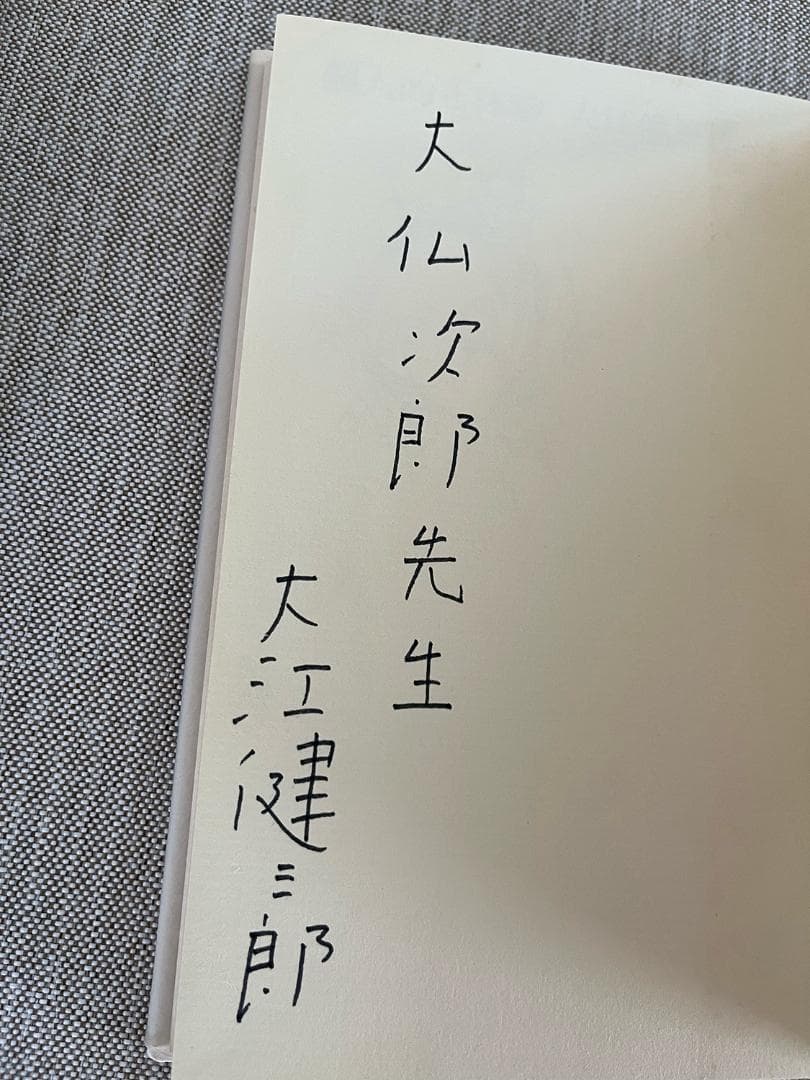 大仏次郎先生
大江健三郎